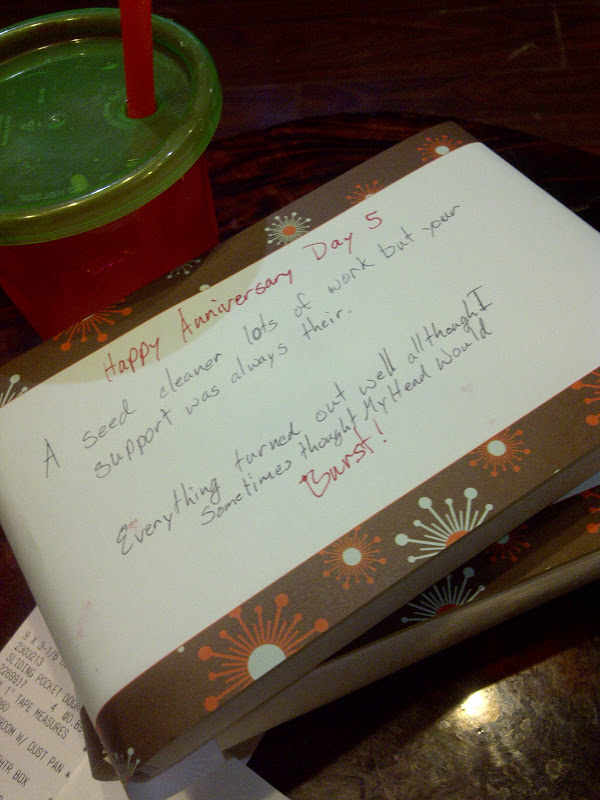 Happy Anniversary Day 5
A seed cleaner lots of work but your
support was always their.
Everything turned out well allthough I
Sometimes thought My Head Would
Burst!
9 X 3-1/8
2303213
SLIDING POCKET DOOR
2269917
1" TAPE MEASURES
ROOM W/ DUST PAN
BOX